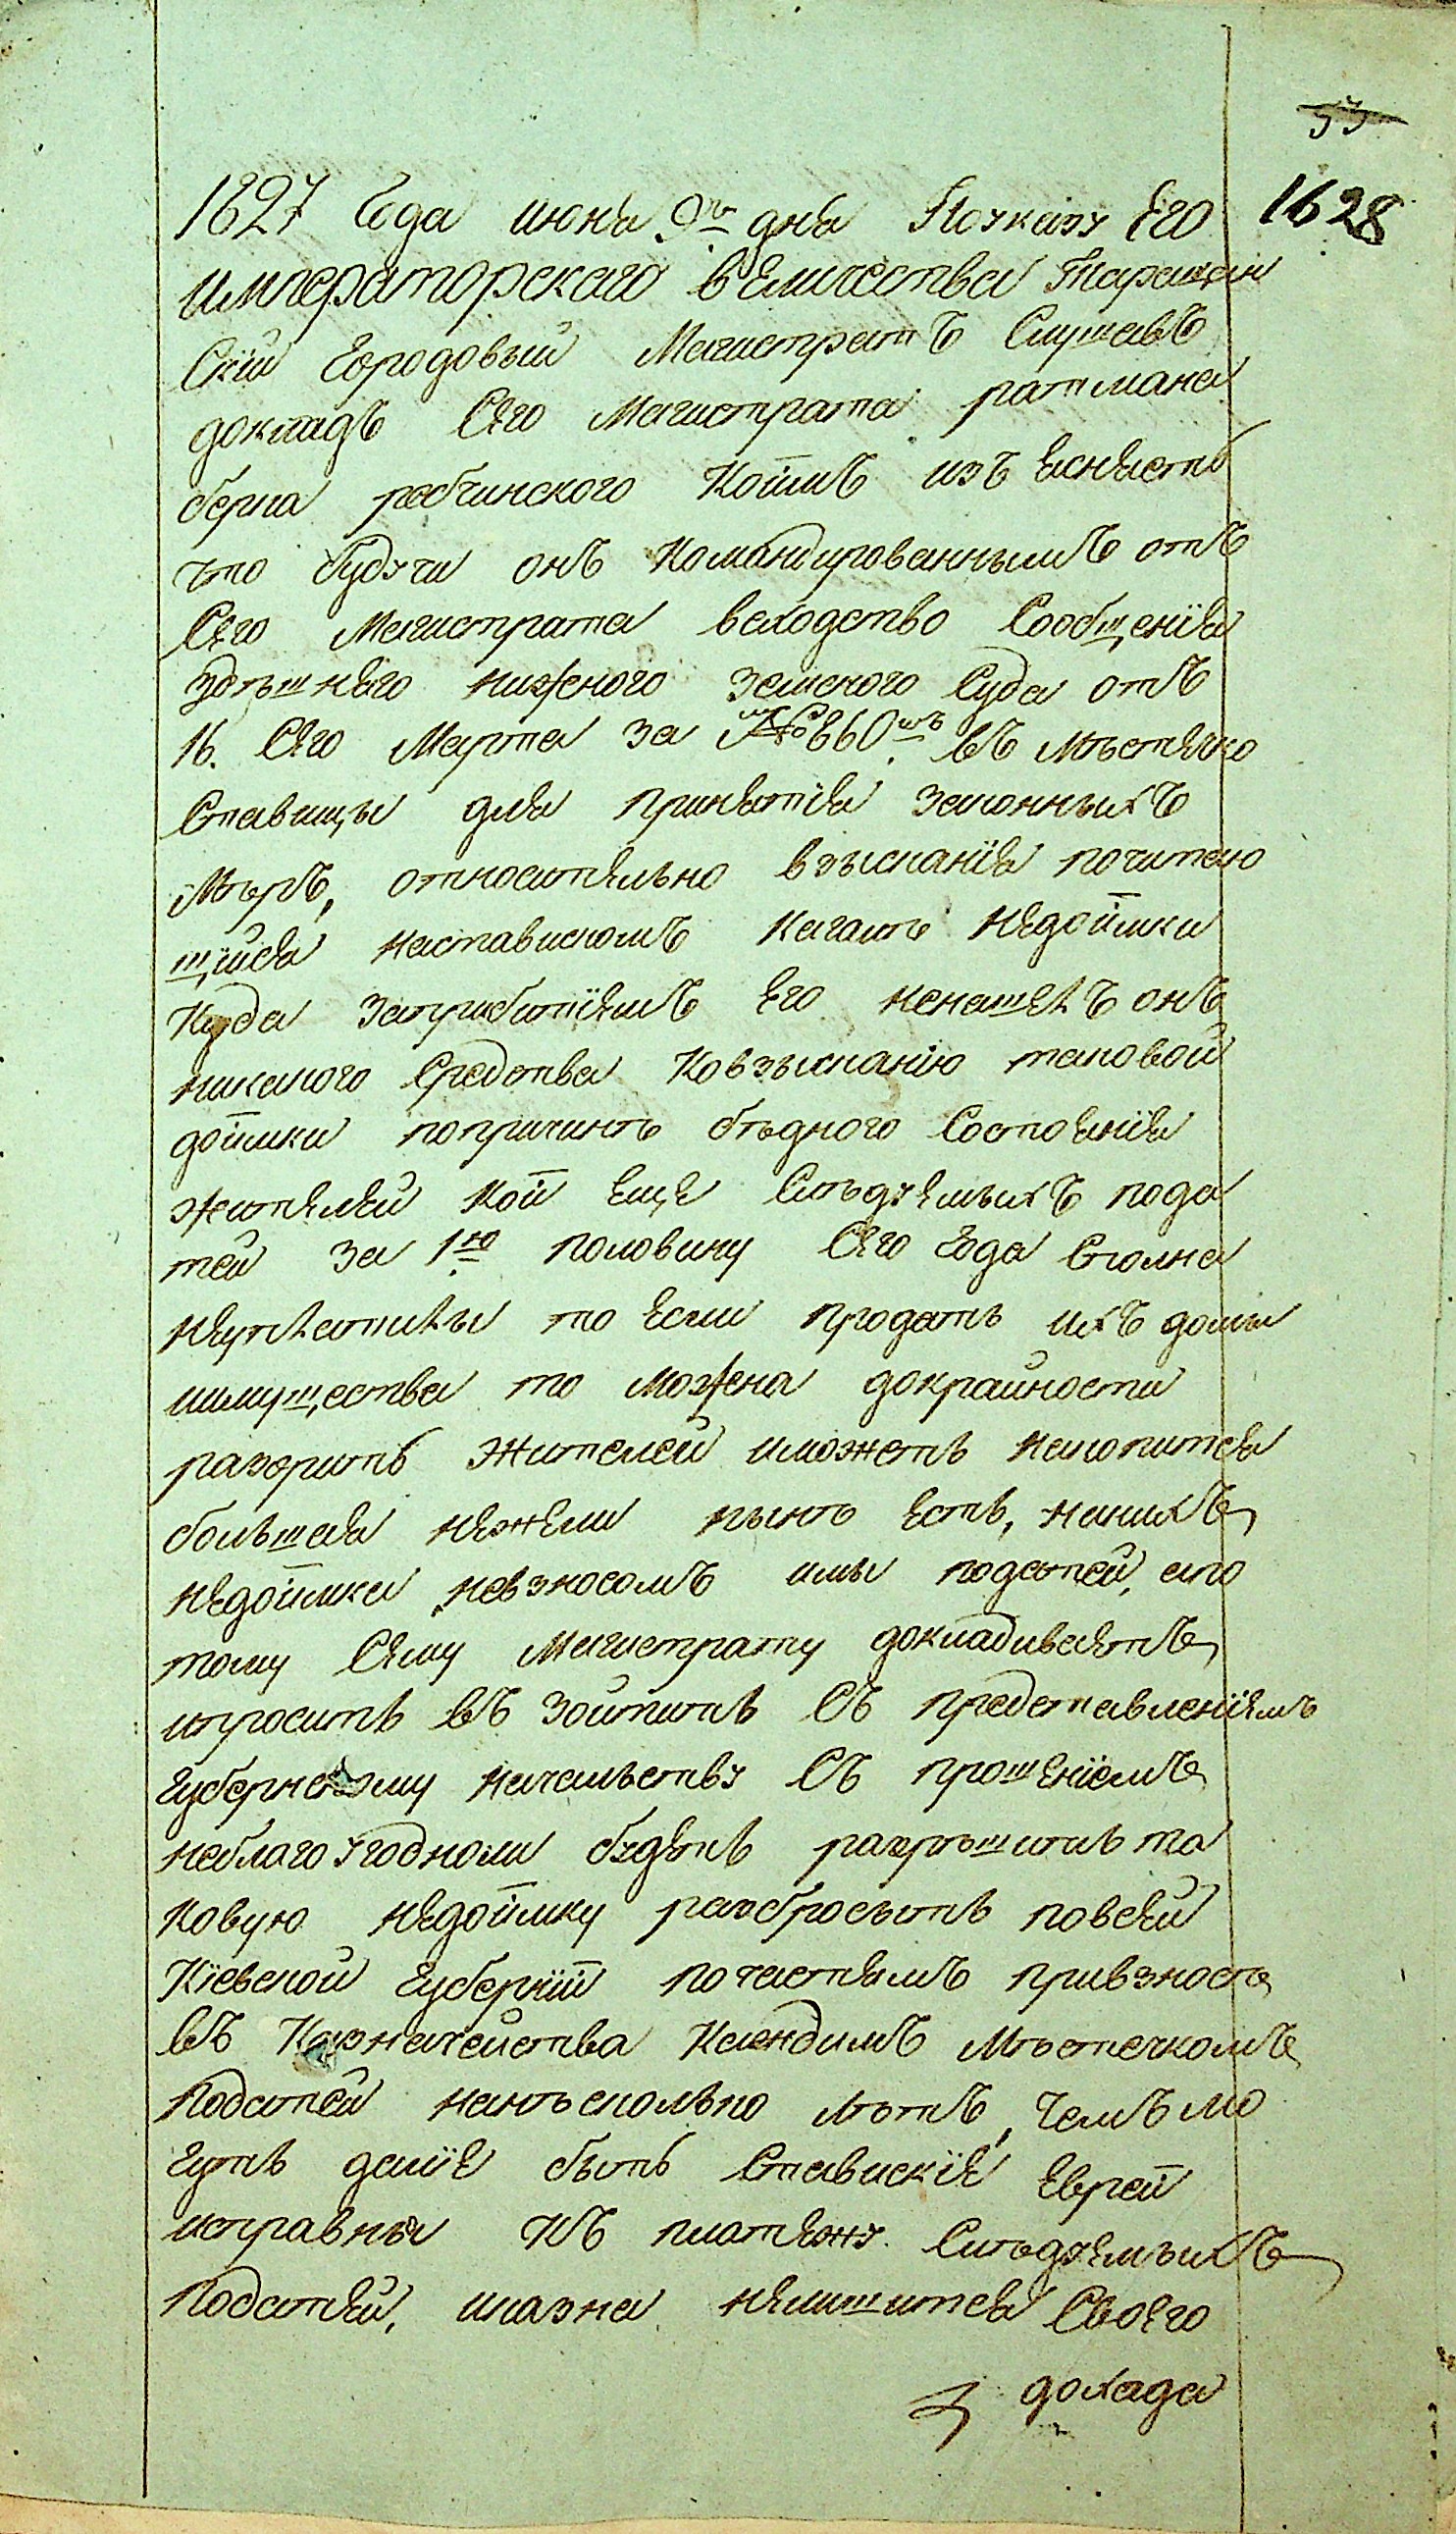 53
1628
1827 Года июня 9го дня По указу Его
императорскаго величества Таращан
Скій Городовый Магистратъ Слушавъ
докладъ Сего Магистрата ратмана
берка рабчинского Коимъ изъ ясняетъ
что будучи онъ Командированнымъ отъ
Сего Магистрата веходство Сообщенія
здѣшняго нижного земского Суда отъ
16. Сего Марта за №860мъ въ мѣстечко
Ставищы для принятія законныхъ
Мѣръ, относительно взысканія почитаю
щійся наставискомъ кагалѣ недоимки
Куда заприбытіемъ Его ненашелъ онъ
никакого Средства Ковзысканію таковой
доимки попричинѣ бѣдного Состоянія
жителей кои еще Слѣдуемыхъ пода
тей за 1ю половину Сего Года Сполна
неуплатилы то если продать ихъ домы
имущества то можна докрайности
разорить жителей иможетъ накопитея
большая нежели нынѣ есть, нанихъ
недоимка невзносомъ имы податей, апо
тому Сему Магистрату докладиваетъ
ипроситъ въ зойтить Съ представленіемъ
Губернскому начальству Съ прошеніемъ
неблаго угодноли будетъ разрѣшить та
ковую недоимку разбросыть повсей
Кіевской Губерніи почастямъ привзносѣ
въ Казначейства Каендимъ Мѣстечкомъ
Податей нанѣсколько лѣтъ, Чемъ мо
гутъ даліе быть Ставискіе Евреи
исправны Къ платежу Слѣдуемыхъ
Податей, иказна нелишится Своего
дохада